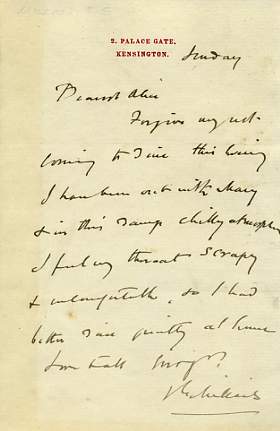 2. PALACE GATE,
KENSINGTON.
Sunday
Dearest Alice
Forgive my not
coming to dine this evening
I have been out with Mary
& in this damp chilly atmosphere
I feel my throat scrapy
& uncomfortable, so I had
better dine quietly at home